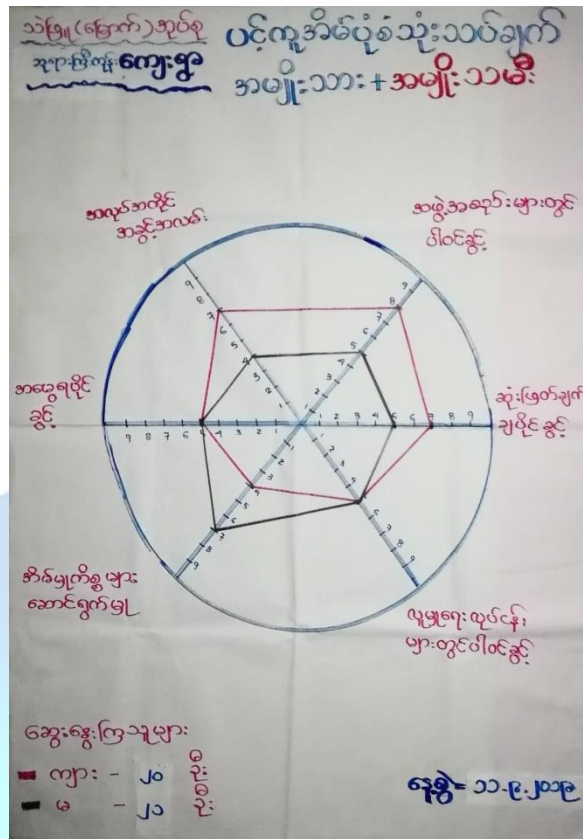 သဲဖြူ(မြောက်)အုပ်စု
ဘုရားကြီးကုန်းကျေးရွာ
ပင့်ကူအိမ်ပုံစံသုံးသပ်ချက်
အမျိုးသား+အမျိုးသမီး
အလုပ်အကိုင်
အခွင့်အလမ်း
အဖွဲ့အစည်းများတွင်
ပါဝင်ခွင့်
အမွေရပိုင်
ခွင့်
ဆုံးဖြတ်ချက်
ချပိုင်ခွင့်
အိမ်မှုကိစ္စများ
ဆောင်ရွက်မှု
လူမှုရေးလုပ်ငန်း
များတွင်ပါဝင်ခွင့်
ဆွေးနွေးကြသူများ
ကျား - ၂၀ ဦး
မ - ၂၁ ဦး
နေ့စွဲ = ၁၁.၉.၂၀၁၉